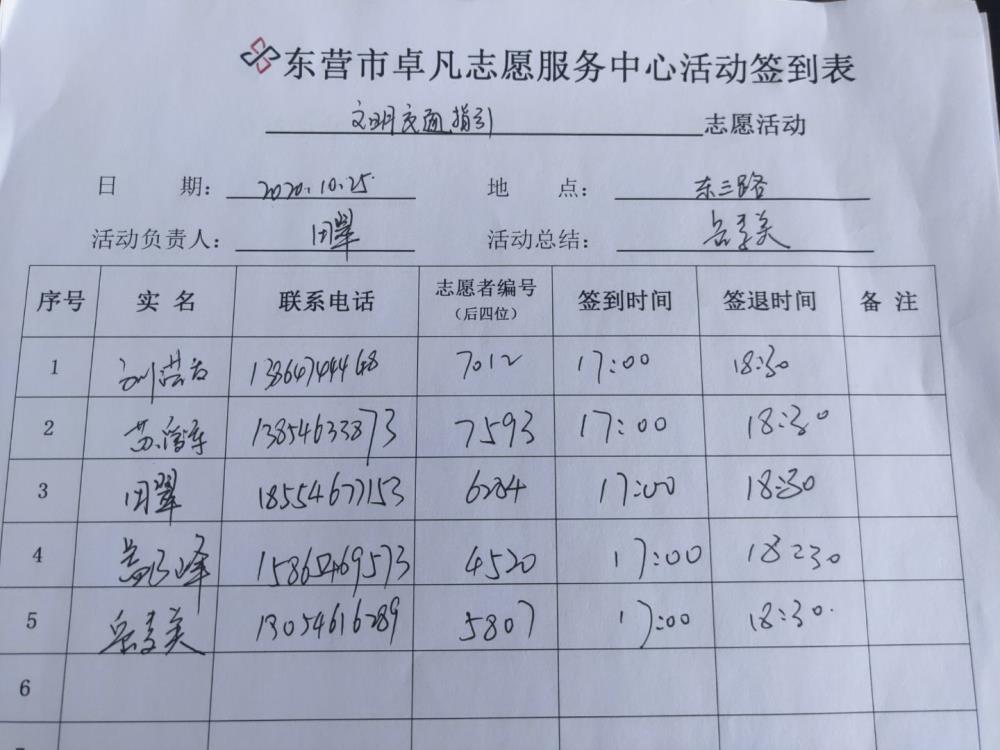 东营市卓凡志愿服务中心活动签到表
文明交通指引 志愿活动
日 期: 2020.10.25 地 点: 东三路
活动负责人: 田翠 活动总结: 岳秀美
序号 实名 联系电话 志愿者编号(后四位) 签到时间 签退时间 备注
1 7012 17:00 18:30
2 苏 13854633873 7593 17:00 18:30
3 田翠 18554677153 6284 17:00 18:30
4 峰 15865469573 4520 17:00 18:30
5 岳秀美 13054616289 5807 17:00 18:30
6